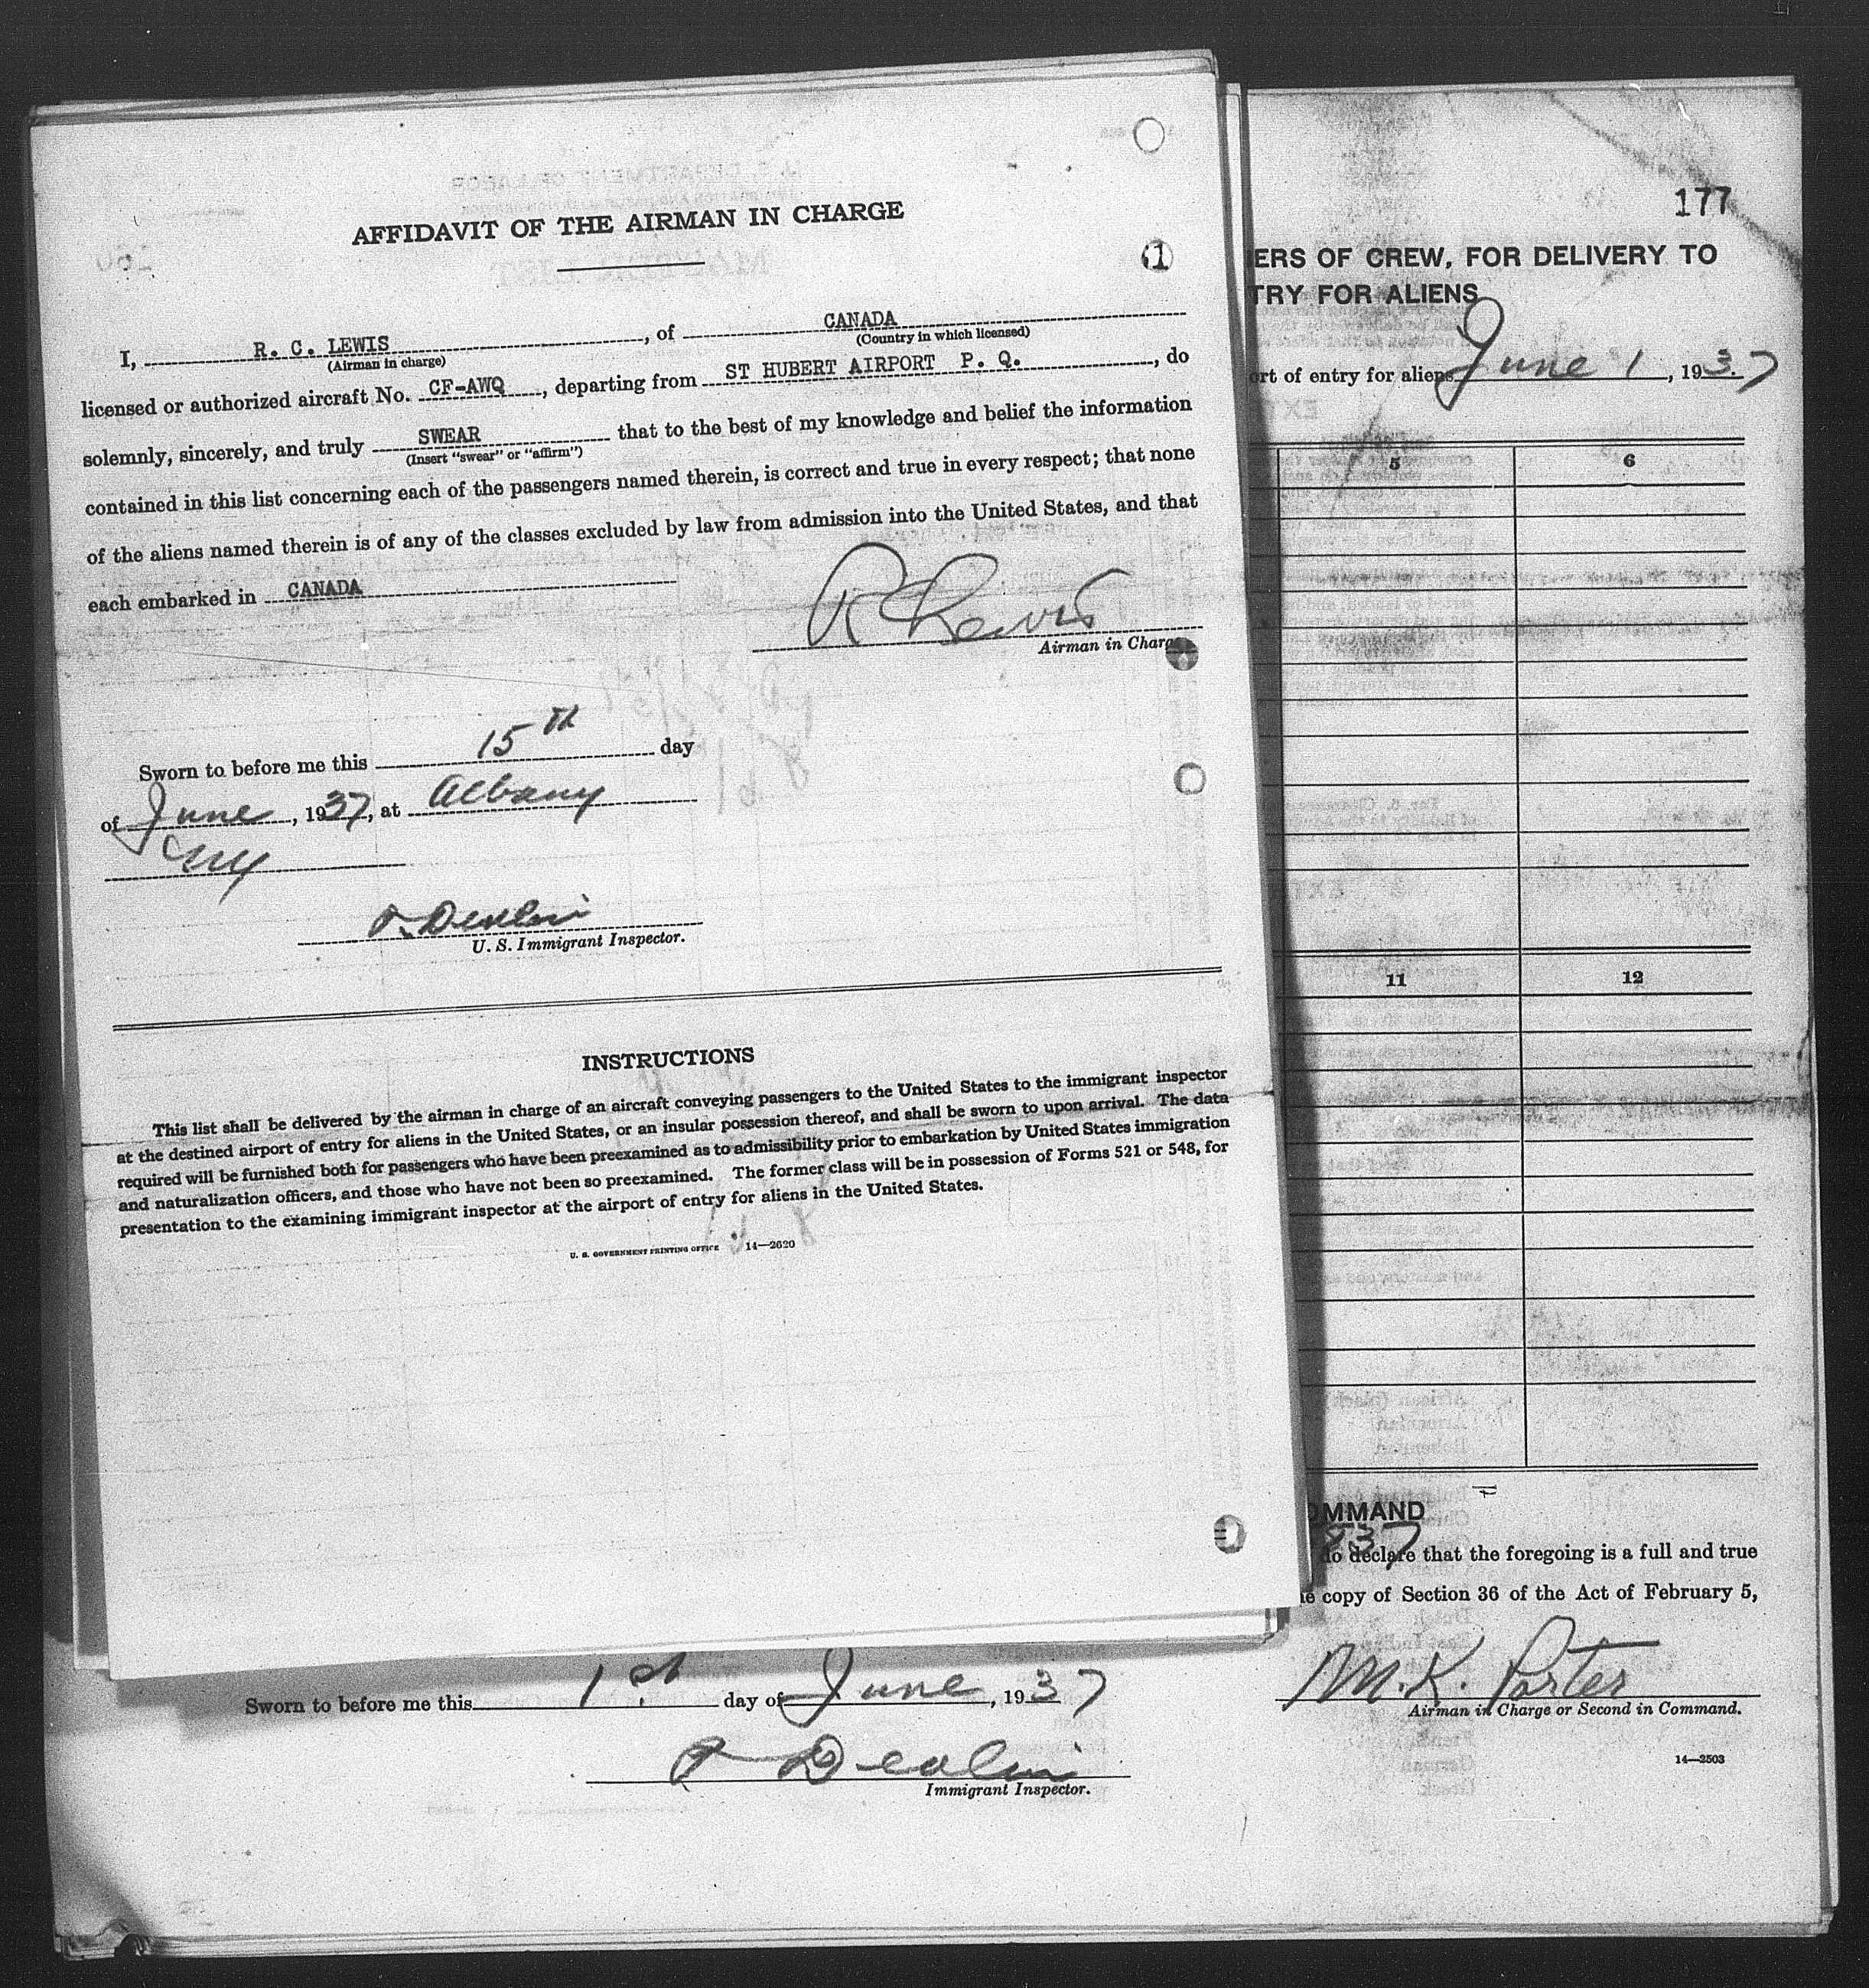 AFFIDAVIT OF THE AIRMAN IN CHARGE
1
I, R. C. LEWIS, of CANADA
(Airman in charge) (Country in which licensed)
licensed or authorized aircraft No. CF-AWQ, departing from ST HUBERT AIRPORT P. Q., do
solemnly, sincerely, and truly SWEAR that to the best of my knowledge and belief the information
(Insert "swear" or "affirm")
contained in this list concerning each of the passengers named therein, is correct and true in every respect; that none
of the aliens named therein is of any of the classes excluded by law from admission into the United States, and that
each embarked in CANADA
R C Lewis
Airman in Charge
Sworn to before me this 15th day
of June, 1937, at Albany
NY
U. S. Immigrant Inspector.
INSTRUCTIONS
This list shall be delivered by the airman in charge of an aircraft conveying passengers to the United States to the immigrant inspector
at the destined airport of entry for aliens in the United States, or an insular possession thereof, and shall be sworn to upon arrival. The data
required will be furnished both for passengers who have been preexamined as to admissibility prior to embarkation by United States immigration
and naturalization officers, and those who have not been so preexamined. The former class will be in possession of Forms 521 or 548, for
presentation to the examining immigrant inspector at the airport of entry for aliens in the United States.
U. S. GOVERNMENT PRINTING OFFICE 14—2620
177
ERS OF CREW, FOR DELIVERY TO
TRY FOR ALIENS
ort of entry for aliens June 1, 1937
5 6
11 12
OMMAND
837
do declare that the foregoing is a full and true
he copy of Section 36 of the Act of February 5,
M. K. Porter
Airman in Charge or Second in Command.
14—2503
Sworn to before me this 1st day of June, 1937
Immigrant Inspector.